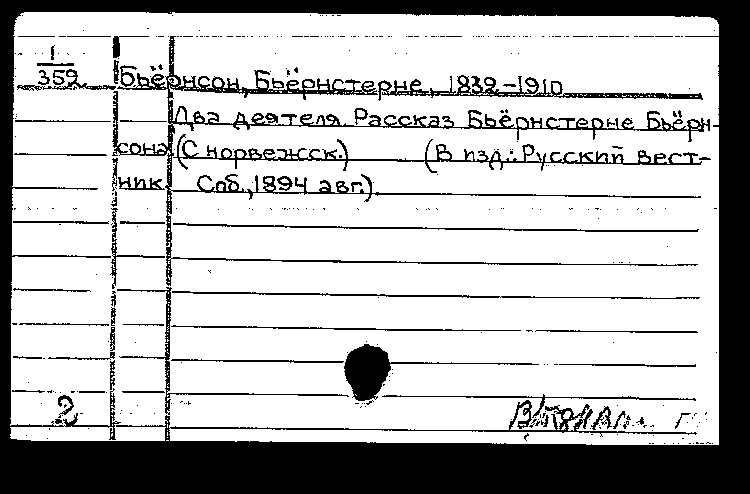 1
359 Бьёрнсон, Бьёрнстерне, 1832-1910
Два деятеля. Рассказ Бьёрнстерне Бьёрн-
сона (С норвежск.) (В изд.: Русский вест-
ник. Спб., 1894 авг.).
2